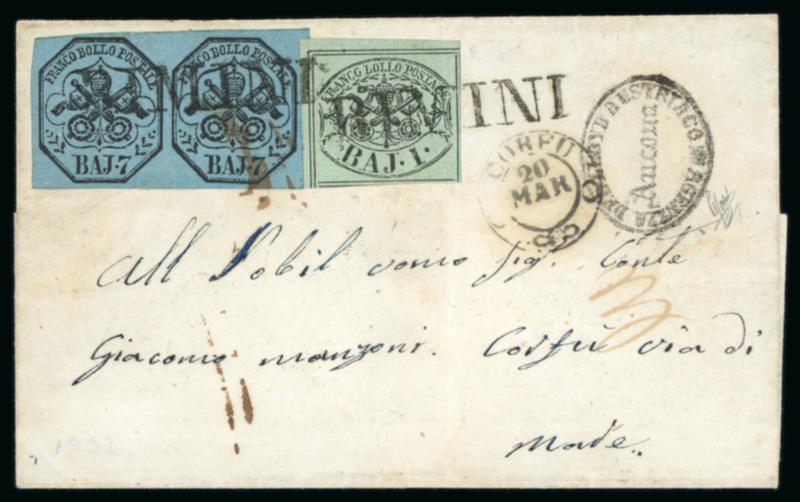 FRANCO BOLLO POSTALE
BAJ·7
FRANCO BOLLO POSTALE
BAJ·7
FRANCO BOLLO POSTALE
BAJ·1·
RIMINI
RIMINI
CORFU
20
MAR
AGENZIA DEL LLOYD AUSTRIACO
Ancona
All Nobil uomo Sig. Conte
Giacomo Manzoni. Corfù via di
Mare.